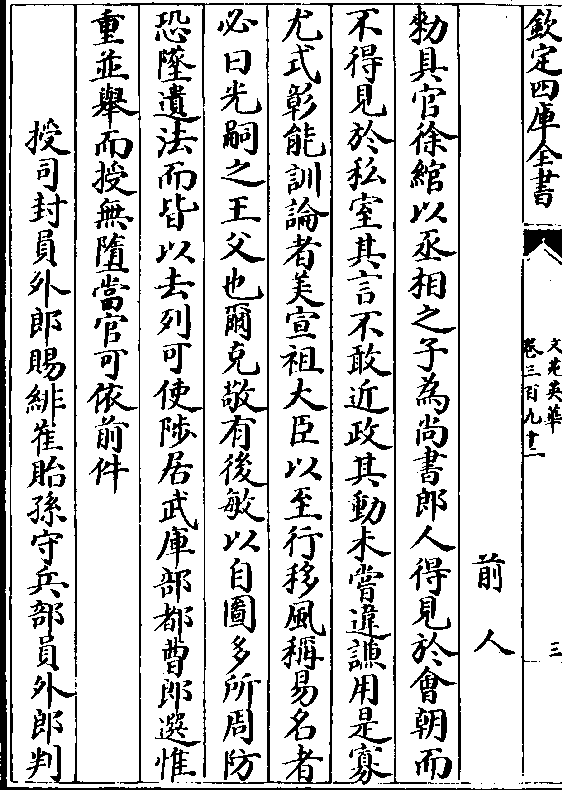 欽定四庫全書
文苑英華
卷三百九十二
三
前人
勅具官徐綰以丞相之子為尚書郎人得見於會朝而
不得見於私室其言不敢近政其動未嘗違謙用是寡
尤式彰能訓論者美宣祖大臣以至行移風稱易名者
必曰光嗣之王父也爾克敬有後敏以自圖多所周防
恐墜遺法而皆以去列可使陟居武庫部都曹郎選惟
重並舉而授無隳當官可依前件
授司封員外郎賜緋崔貽孫守兵部員外郎判